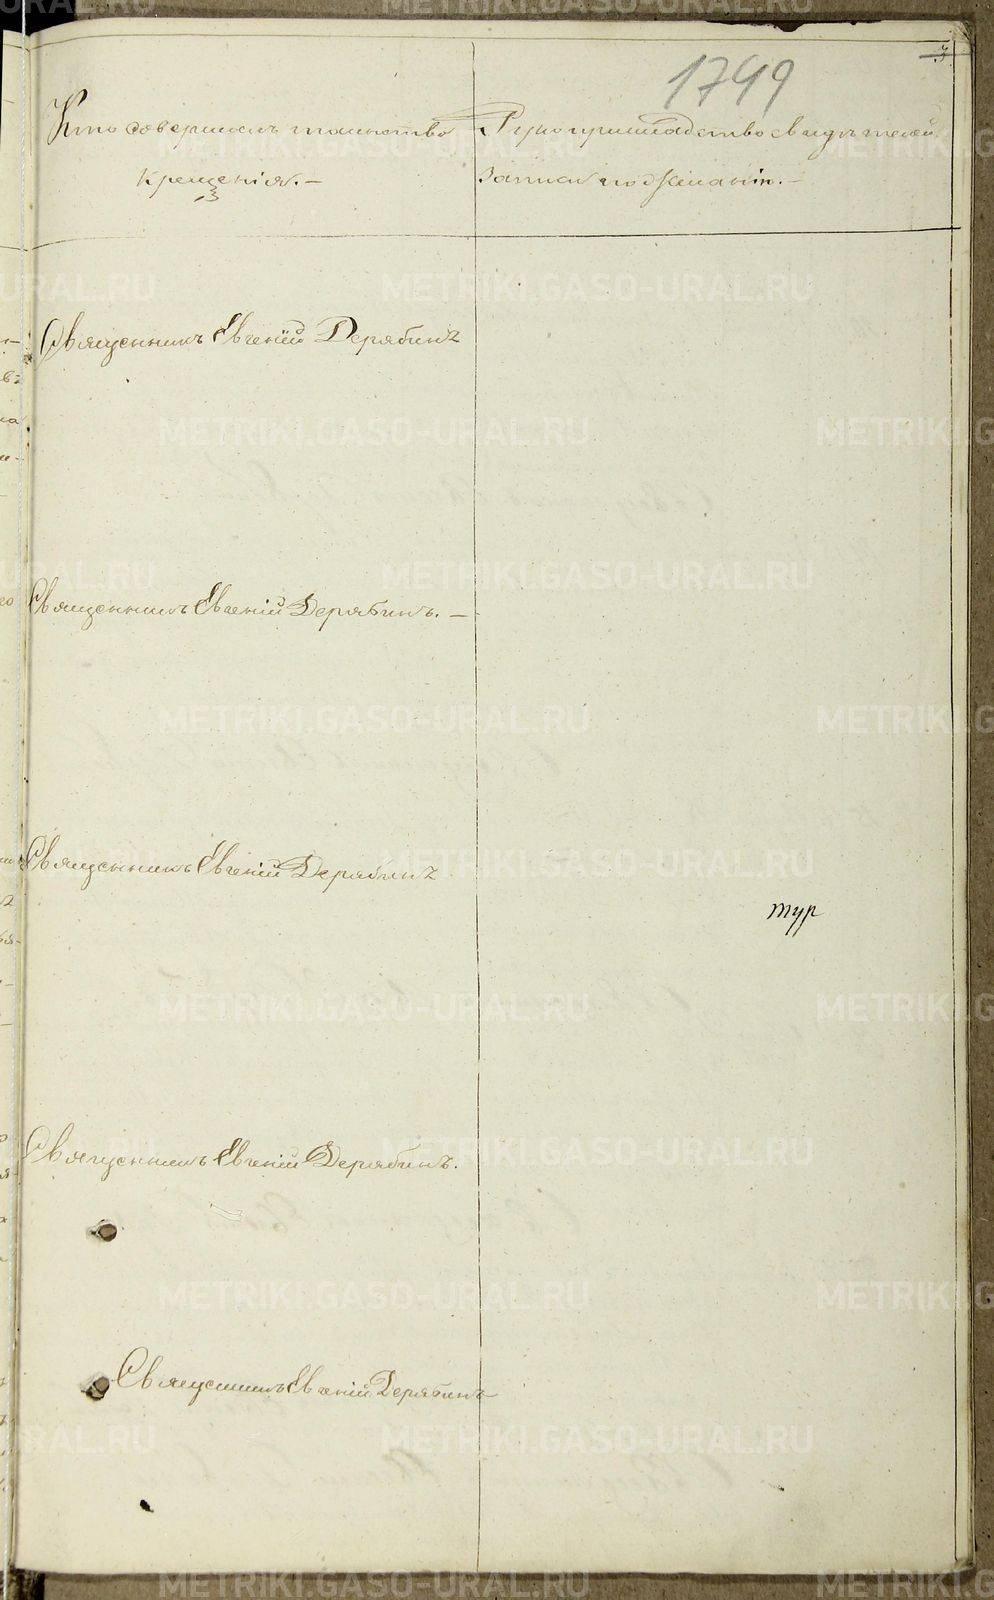 1749
3
Кто совершалъ таинство
крещенія. —
3
Рукоприкладство свидѣтелей
записи по желанію. —
Священникъ Евгеній Дерябинъ
Священникъ Евгеній Дерябинъ. —
Священникъ Евгеній Дерябинъ
тур
Священникъ Евгеній Дерябинъ.
Священникъ Евгеній Дерябинъ
METRIKI.GASO-URAL.RU